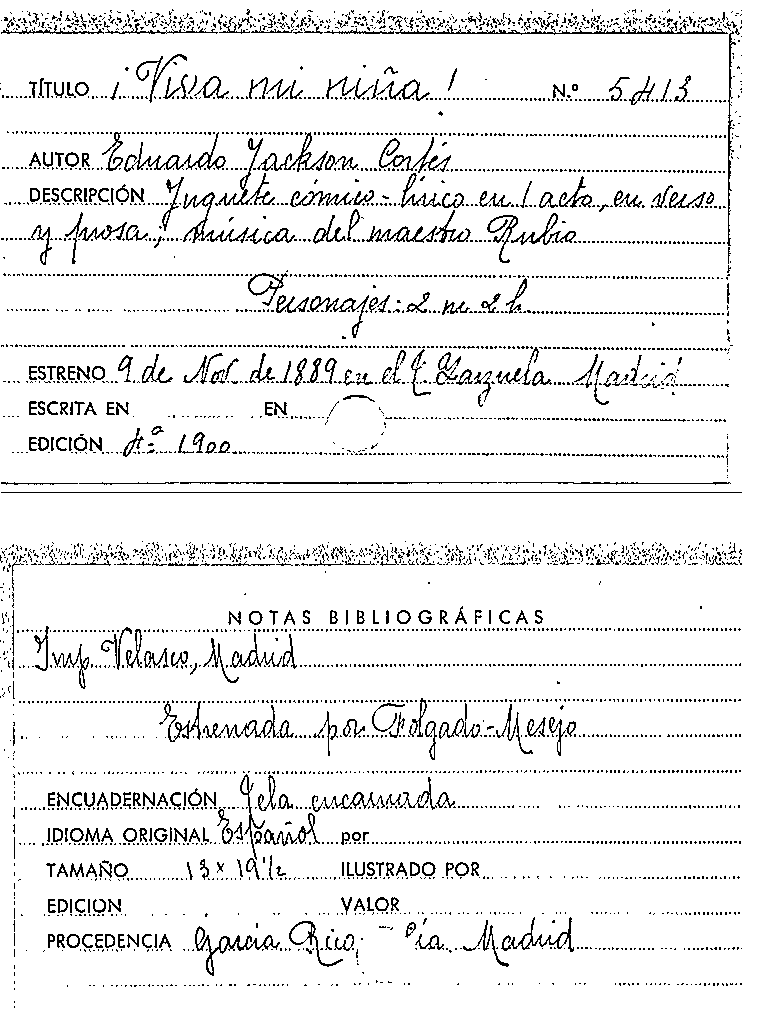 TÍTULO ¡Viva mi niña! N.º 5413
AUTOR Eduardo Jackson Cortés
DESCRIPCIÓN Juguete cómico-lírico en 1 acto, en verso
y prosa; música del maestro Rubio
Personajes: 2 m 2 h
ESTRENO 9 de Nov. de 1889 en el T. Zarzuela Madrid
ESCRITA EN EN
EDICIÓN 4ª 1900
NOTAS BIBLIOGRÁFICAS
Imp. Velasco, Madrid
Estrenada por Folgado-Mesejo
ENCUADERNACIÓN Tela encarnada
IDIOMA ORIGINAL Español por
TAMAÑO 13 x 19 1/2 ILUSTRADO POR
EDICION VALOR
PROCEDENCIA García Rico, - Cía, Madrid